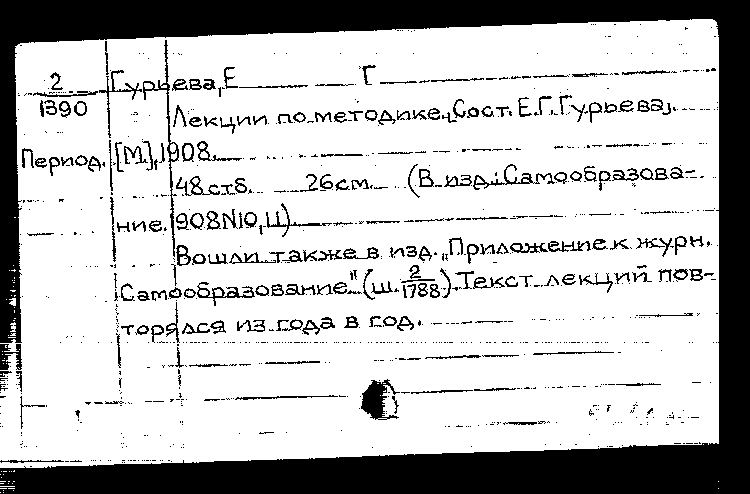 2
1390
Период.
Гурьева, Е Г
Лекции по методике. [Сост. Е.Г. Гурьева].
[М], 1908.
48 стб. 26 см. (В изд.: Самообразова-
ние. 1908 N10, 11).
Вошли также в изд. „Приложение к журн.
Самообразование" (ш. 2/1788). Текст лекций пов-
торялся из года в год.